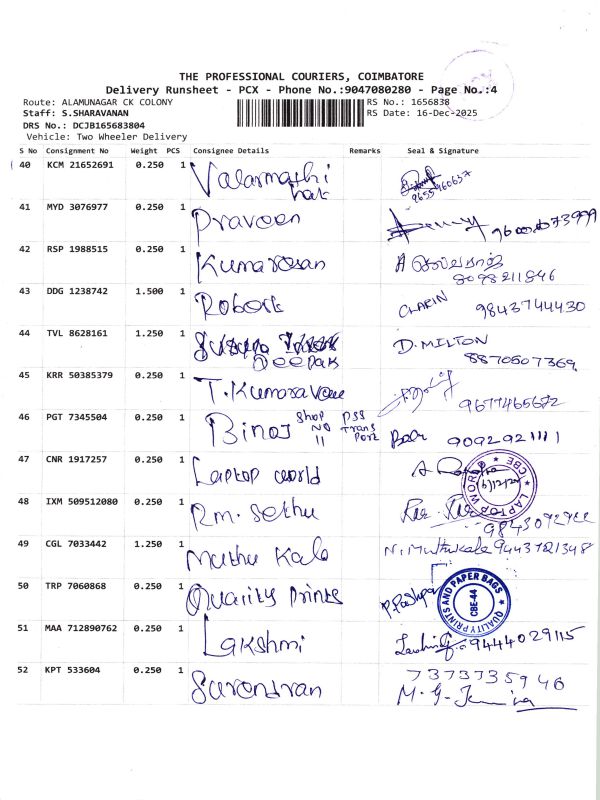 THE PROFESSIONAL COURIERS, COIMBATORE
Delivery Runsheet - PCX - Phone No.:9047080280 - Page No.:4
Route: ALAMUNAGAR CK COLONY RS No.: 1656838
Staff: S.SHARAVANAN RS Date: 16-Dec-2025
DRS No.: DCJB165683804
Vehicle: Two Wheeler Delivery
S No Consignment No Weight PCS Consignee Details Remarks Seal & Signature
40 KCM 21652691 0.250 1 Valarmathi
9655960637
41 MYD 3076977 0.250 1 Praveen
42 RSP 1988515 0.250 1 Kumaresan
8098211846
43 DDG 1238742 1.500 1 Robork CLARIN 9843744430
44 TVL 8628161 1.250 1 D. MILTON
Deepak 8870507369
45 KRR 50385379 0.250 1 T.Kumaravan 9677465672
46 PGT 7345504 0.250 1 Binoj Shop No 11 PSS Trans Port 9092921111
47 CNR 1917257 0.250 1 Laptop world
LAPTOP WORLD CBE
48 IXM 509512080 0.250 1 Rm. Sethu
49 CGL 7033442 1.250 1 Muthu Kala N. Muthukala 9443721348
50 TRP 7060868 0.250 1 Quality prints
QUALITY PRINTS AND PAPER BAGS CBE-44
51 MAA 712890762 0.250 1 Lakshmi 9444029115
52 KPT 533604 0.250 1 Surendran 7373735946